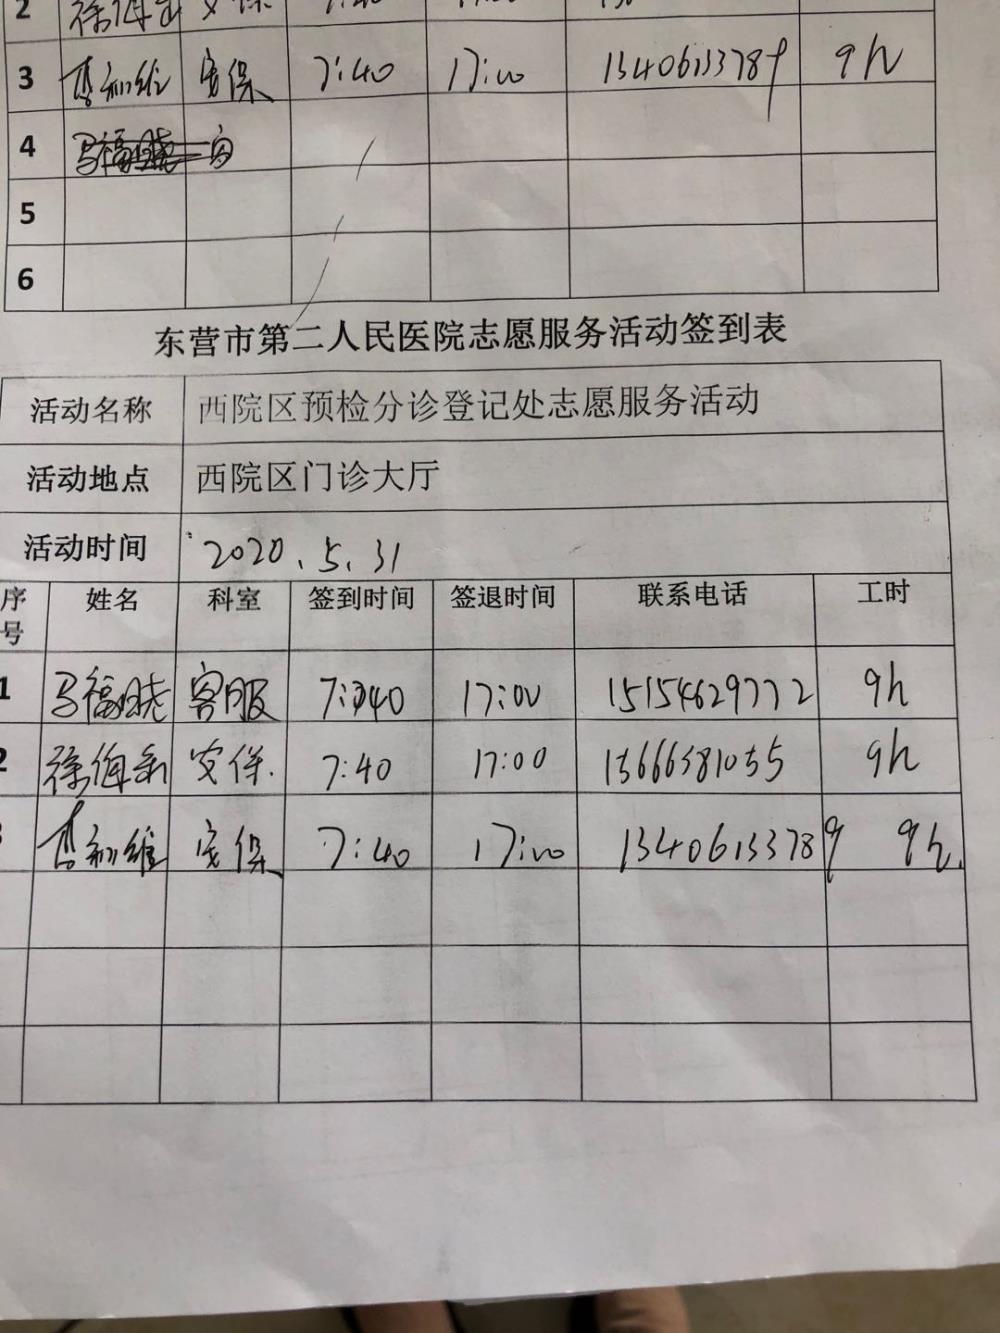 2
3 安保 7:40 17:00 13406133789 9h
4
5
6
东营市第二人民医院志愿服务活动签到表
活动名称 西院区预检分诊登记处志愿服务活动
活动地点 西院区门诊大厅
活动时间 2020.5.31
序号 姓名 科室 签到时间 签退时间 联系电话 工时
1 马福晓 客服 7:40 17:00 15154629772 9h
2 安保. 7:40 17:00 9h
安保 7:40 17:00 13406133789 9h.